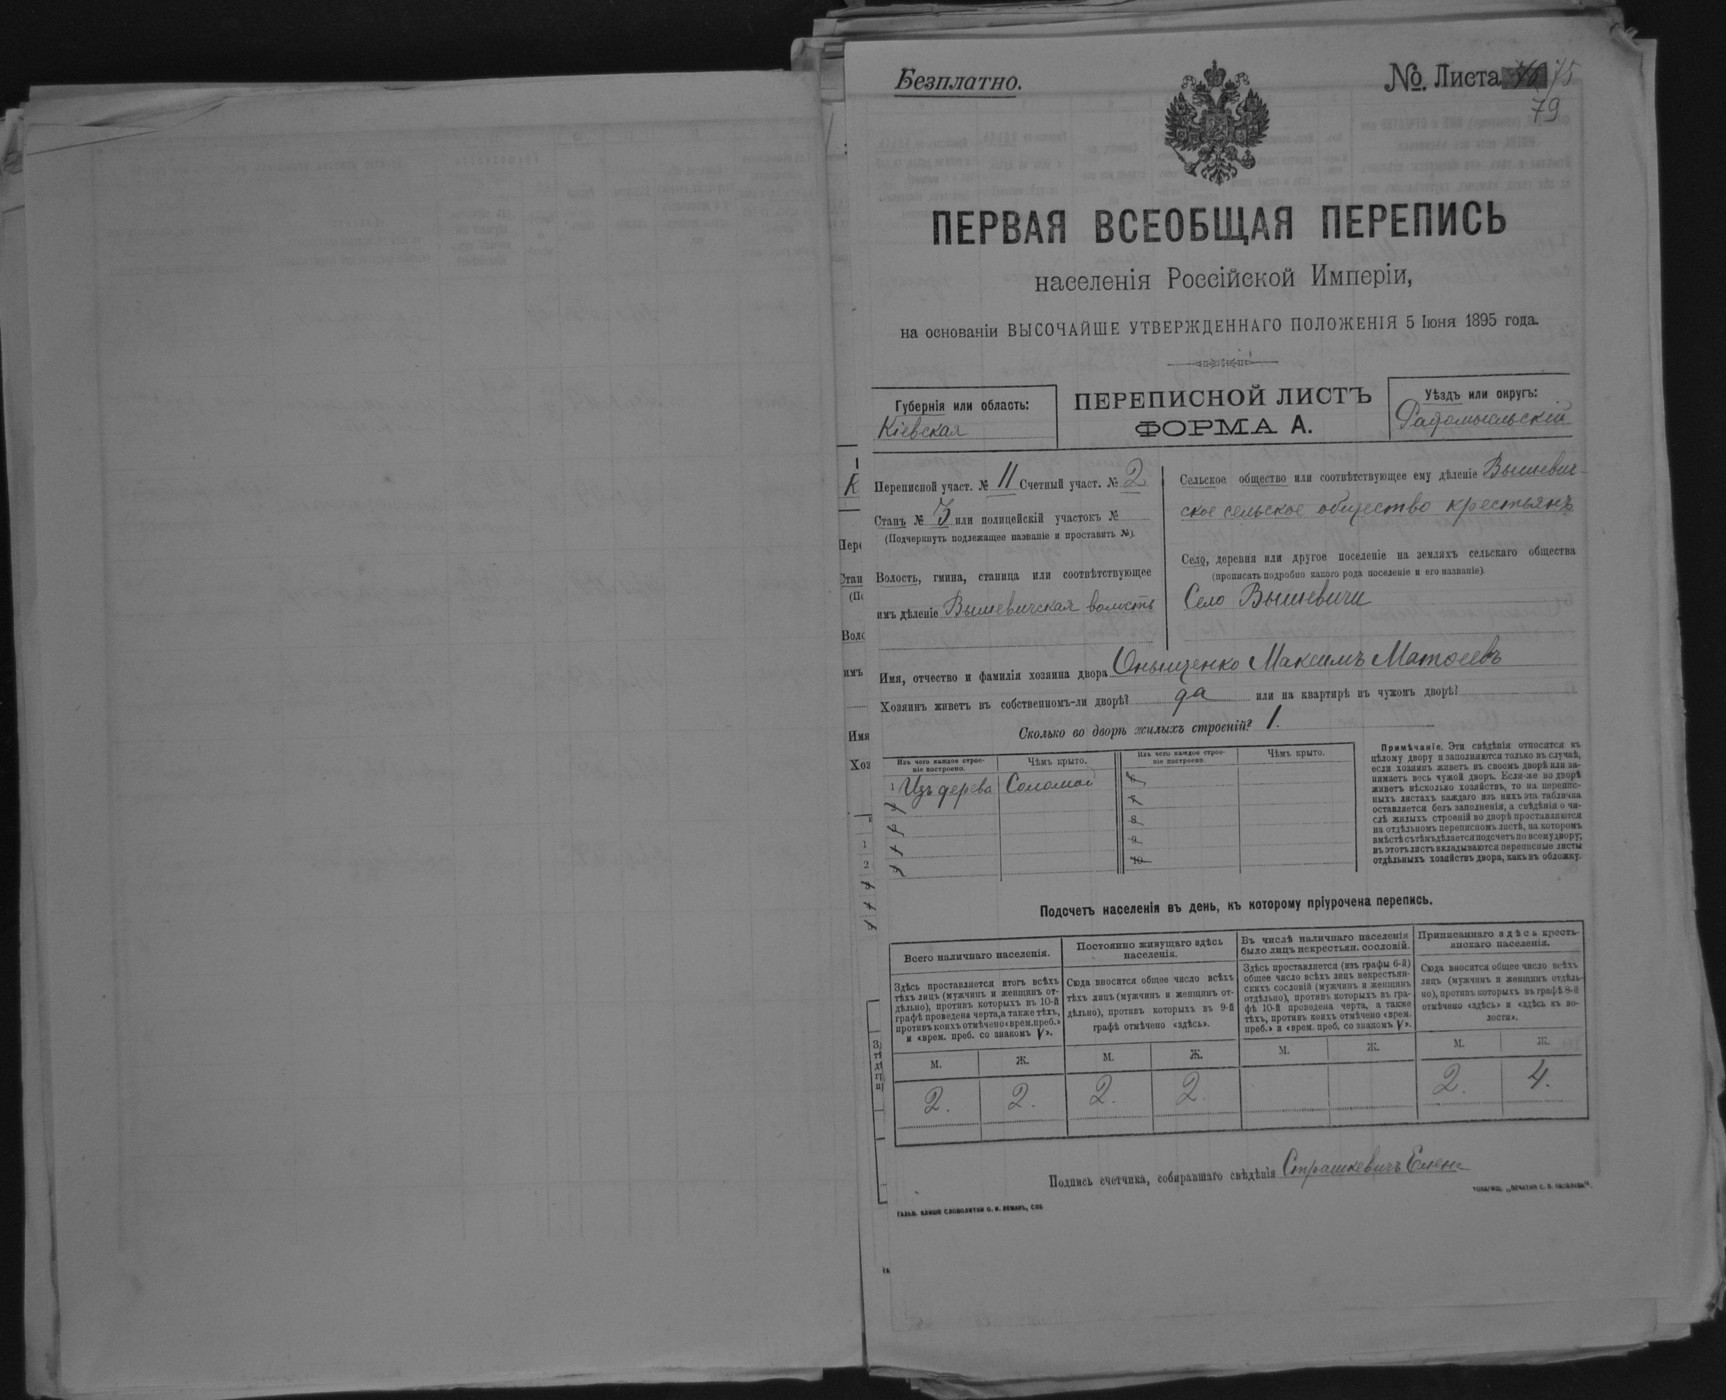 Безплатно.
№. Листа 75
79
ПЕРВАЯ ВСЕОБЩАЯ ПЕРЕПИСЬ
населенія Россійской Имперіи,
на основаніи ВЫСОЧАЙШЕ УТВЕРЖДЕННАГО ПОЛОЖЕНІЯ 5 Іюня 1895 года.
Губернія или область:
Кіевская
ПЕРЕПИСНОЙ ЛИСТЪ
ФОРМА А.
Уѣздъ или округъ:
Радомысльскій
Переписной участ. № 11 Счетный участ. № 2
Станъ № 3 или полицейскій участокъ №
(Подчеркнуть подлежащее названіе и проставить №).
Волость, гмина, станица или соотвѣтствующее
имъ дѣленіе Вышевичская волость
Сельское общество или соотвѣтствующее ему дѣленіе Вышевич-
ское сельское общество крестьянъ
Село, деревня или другое поселеніе на земляхъ сельскаго общества
(прописать подробно какого рода поселеніе и его названіе).
Село Вышевичи
Имя, отчество и фамилія хозяина двора Онищенко Максимъ Матѳеевъ
Хозяинъ живетъ въ собственномъ-ли дворѣ? да или на квартирѣ въ чужомъ дворѣ?
Сколько во дворѣ жилыхъ строеній? 1.
Изъ чего каждое строе-
ніе построено.
Чѣмъ крыто.
Изъ чего каждое строе-
ніе построено.
Чѣмъ крыто.
1 Изъ дерева Соломой
8
9
10
Примѣчаніе. Эти свѣдѣнія относятся къ
цѣлому двору и заполняются только въ случаѣ,
если хозяинъ живетъ въ своемъ дворѣ или за-
нимаетъ весь чужой дворъ. Если-же во дворѣ
живетъ нѣсколько хозяйствъ, то на перепис-
ныхъ листахъ каждаго изъ нихъ эта табличка
оставляется безъ заполненія, а свѣдѣнія о чи-
слѣ жилыхъ строеній во дворѣ проставляются
на отдѣльномъ переписномъ листѣ, на которомъ
вмѣстѣ съ тѣмъ дѣлается подсчетъ по всему двору;
въ этотъ листъ вкладываются переписные листы
отдѣльныхъ хозяйствъ двора, какъ въ обложку.
Подсчетъ населенія въ день, къ которому пріурочена перепись.
Всего наличнаго населенія.
Постоянно живущаго здѣсь
населенія.
Въ числѣ наличнаго населенія
было лицъ некрестьян. сословій.
Приписаннаго здѣсь кресть-
янскаго населенія.
Здѣсь проставляется итогъ всѣхъ
тѣхъ лицъ (мужчинъ и женщинъ от-
дѣльно), противъ которыхъ въ 10-й
графѣ проведена черта, а также тѣхъ,
противъ коихъ отмѣчено «врем. преб.»
и «врем. преб. со знакомъ V».
Сюда вносится общее число всѣхъ
тѣхъ лицъ (мужчинъ и женщинъ от-
дѣльно), противъ которыхъ въ 9-й
графѣ отмѣчено «здѣсь».
Здѣсь проставляется (изъ графы 6-й)
общее число всѣхъ лицъ некрестьян-
скихъ сословій (мужчинъ и женщинъ
отдѣльно), противъ которыхъ въ гра-
фѣ 10-й проведена черта, а также
тѣхъ, противъ коихъ отмѣчено «врем.
преб.» и «врем. преб. со знакомъ V».
Сюда вносится общее число всѣхъ
лицъ (мужчинъ и женщинъ отдѣль-
но), противъ которыхъ въ графѣ 8-й
отмѣчено «здѣсь» и «здѣсь къ во-
лости».
М. Ж. М. Ж. М. Ж. М. Ж.
2. 2. 2. 2. 2. 4.
Подпись счетчика, собиравшаго свѣдѣнія Страшкевичъ
ГАЛЬВ. КЛИШЕ СЛОВОЛИТНИ О. И. ЛЕМАНЪ, СПБ
ТОВАРИЩ. „ПЕЧАТНЯ С. П. ЯКОВЛЕВА".